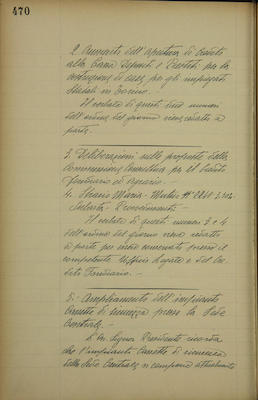 470
2. Aumento dell'apertura di Credito
alla Cassa Depositi e Prestiti per la
costruzione di case per gli impiegati
Statali in Torino. -
Il verbale di questi due numeri
dell'ordine del giorno viene redatto a
parte.
3. Deliberazioni sulle proposte della
Commissione Consultiva per il Credito
Fondiario ed Agrario. -
4. Maria - Mutuo N°
- Provvedimenti -
Il verbale di questi numeri 3 e 4
dell'ordine del giorno viene redatto
a parte per essere conservato presso il
competente Ufficio Legale e del Cre-
dito Fondiario. -
5. - Ampliamento dell'impianto
Cassette di sicurezza presso la Sede
Centrale. -
Il Sig. Signor Presidente ricorda
che l'impianto Cassette di sicurezza
della Sede Centrale si compone attualmente